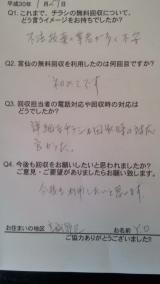 平成30年 1月27日
Q1. これまで、チラシの無料回収について、
どう言うイメージをお持ちでしたか?
不法投棄の業者が多く不安
Q2. 富仙の無料回収を利用したのは何回目ですか?
初めてです
Q3. 回収担当者の電話対応や回収時の対応は
どうでしたか?
詳細なチラシと回収時の対応
良かった。
Q4. 今後も回収をお願いしたいと思われましたか?
ご意見・ご要望がありましたらお願い致します。
今後も利用したいと思います。
お住まいの地区
お名前 Y.O
ご協力ありがとうございました!!